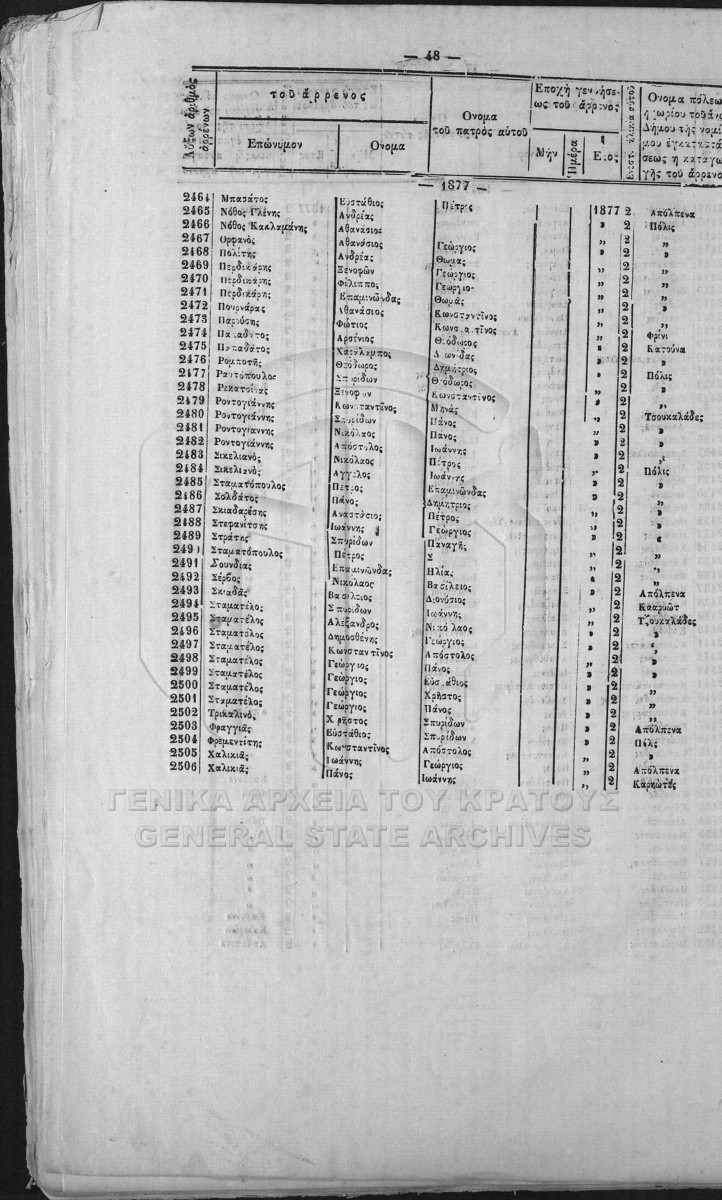 — 48 —
Αὔξων ἀριθμὸς ἀρρένων
τοῦ ἄρρενος
Επώνυμον
Ονομα
Ονομα τοῦ πατρὸς αὐτοῦ
Εποχὴ γεννήσεως τοῦ ἄρρενος
Μὴν
Ἡμέρα
Ετος
Ονομα πόλεω
ἢ χωρίου τοῦ
Δήμου τῆς νομί
μου ἐγκαταστά
σεως ἢ καταγω
γῆς τοῦ ἄρρενο
— 1877 —
2464 Μπασάτος Εὐστάθιος Πέτρος 1877 2 Απόλπενα
2465 Νόθος Γλένης Ανδρέας » 2 Πόλις
2466 Νόθος Κακλαμάνης Αθανάσιος „ 2 „
2467 Ορφανὸς Αθανάσιος Γεώργιος » 2 »
2468 Πολίτης Ανδρέας Θωμας „ 2 „
2469 Περδικάρης Ξενοφῶν Γεωργιος „ 2 „
2470 Περδικάρης Φίλιππος Γεωργιο „ 2 „
2471 Περδικάρης Επαμινῶνδας Θωμᾶς » 2 »
2472 Πουρνάρας Αθανάσιος Κωνσταντῖνος „ 2 „
2473 Φώτιος Κωνσταντῖνος „ 2 Φρίνι
2474 Παπαδάτος Αρσένιος Θεόδωρος » 2 Κατούνα
2475 Παπαδάτος Χαράλαμπος Λεωνίδας » 2 »
2476 Ρομποτῆς Θεόδωρος Δημήτριος » 2 Πόλις
2477 Ραυτόπουλος Σπυρίδων Θεόδωρος „ 2 »
2478 Ρεκατσίνας Ξενοφῶν Κωνσταντῖνος » 2 „
2479 Ροντογιάννης Κωνσταντῖνος Μηνᾶς „ 2 Τσουκαλάδες
2480 Ροντογιάννης Σπυρίδων Πάνος » 2 »
2481 Ροντογιαννης Νικόλαος Πανος » 2 »
2482 Ροντογιάννης Απόστολος Ιωάννης » 2 „
2483 Σικελιανὸς Νικόλαος Πέτρος „ 2 Πόλις
2484 Σικελιανὸς Αγγελος Ιωάννης » 2 »
2485 Σταματόπουλος Πέτρος Επαμινῶνδας » 2 „
2486 Σολδάτος Πάνος Δημήτριος „ 2 »
2487 Σκιαδαρέσης Αναστάσιος Πέτρος » 2 »
2488 Στεφανίτσης Ιωάννης Γεώργιος » 2 »
2489 Στράτης Σπυρίδων Παναγῆς „ 2 „
2490 Σταματόπουλος Πέτρος Σ „ 2 „
2491 Σουνδιας Επαμινῶνδας Ηλίας » 2 „
2492 Σέρβος Νικόλαος Βασίλειος » 2 Απόλπενα
2493 Σκιαδᾶς Βασίλειος Διονύσιος „ 2
2494 Σταματέλος Σπυρίδων Ιωάννης » 2 Τζουκαλάδες
2495 Σταματέλος Αλέξανδρος Νικόλαος » 2 »
2496 Σταματέλος Δημοσθένης Γεώργιος » 2 „
2497 Σταματέλος Κωνσταντῖνος Απόστολος „ 2 »
2498 Σταματέλος Γεώργιος Πάνος » 2 »
2499 Σταματέλος Γεώργιος Εὐσταθιος » 2 „
2500 Σταματέλος Γεώργιος Χρῆστος » 2 „
2501 Σταματέλος Γεώργιος Πάνος » 2 „
2502 Τρικαλινὸς Χρῆστος Σπυρίδων » 2 Απόλπενα
2503 Φραγγιᾶς Εὐστάθιος Σπυρίδων » 2 Πόλις
2504 Φρεμεντίτης Κωνσταντῖνος Απόστολος „ 2 »
2505 Χαλικιᾶς Ιωάννης Γεώργιος „ 2 Απόλπενα
2506 Χαλικιᾶς Πάνος Ιωάννης „ 2 Καρηώτες
ΓΕΝΙΚΑ ΑΡΧΕΙΑ ΤΟΥ ΚΡΑΤΟΥΣ
GENERAL STATE ARCHIVES